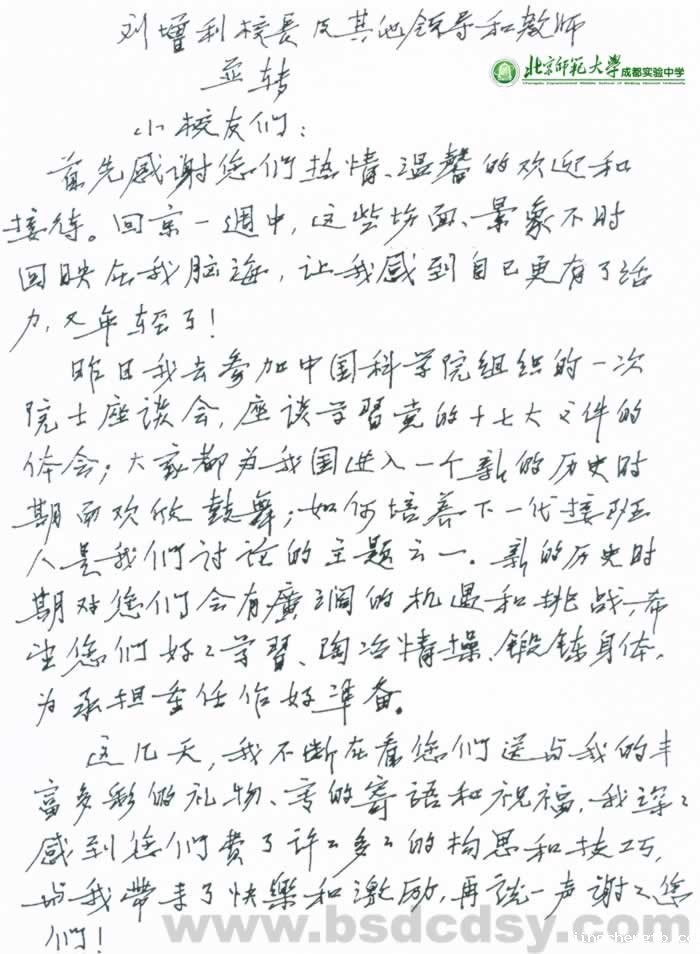 刘增利校長及其他领导和教师
並转
北京师范大学成都实验中学
小校友们：
首先感谢您们热情、温馨的欢迎和
接待。回京一週中，这些场面、景象不时
回映在我脑海，让我感到自己更有了活
力，又年轻了！
昨日我去参加中国科学院组织的一次
院士座谈会，座谈学習党的十七大文件的
体会；大家都为我国进入一个新的历史时
期而欢欣鼓舞；如何培养下一代接班
人是我们讨论的主题之一。新的历史时
期对您们会有廣阔的机遇和挑战，希
望您们好々学習、陶冶情操、鍛鍊身体，
为承担重任作好准备。
这几天，我不断在看您们送与我的丰
富多彩的礼物、的寄語和祝福，我深々
感到您们費了许々多々的构思和技巧，
与我带来了快樂和激励，再说一声谢々您
们！
www.bsdcdsy.com